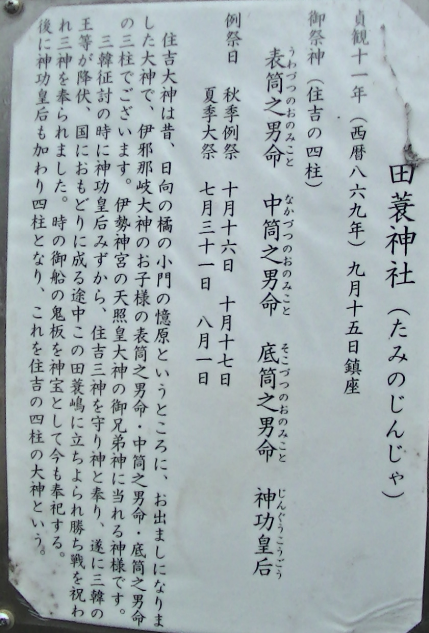 田蓑神社（たみのじんじゃ）
貞観十一年（西暦八六九年）九月十五日鎮座
御祭神（住吉の四柱）
表筒之男命　中筒之男命　底筒之男命　神功皇后
うわづつのおのみこと　なかづつのおのみこと　そこづつのおのみこと　じんぐうこうごう
例祭日　秋季例祭　十月十六日　十月十七日
夏季大祭　七月三十一日　八月一日
住吉大神は昔、日向の橘の小門の憶原というところに、お出ましになりま
した大神で、伊邪那岐大神のお子様の表筒之男命・中筒之男命・底筒之男命
の三柱でございます。伊勢神宮の天照皇大神の御兄弟神に当れる神様です。
三韓征討の時に神功皇后みずから、住吉三神を守り神と奉り、遂に三韓の
王等が降伏、国におもどりに成る途中この田蓑嶋に立ちよられ勝ち戦を祝わ
れ三神を奉られました。時の御船の鬼板を神宝として今も奉祀する。
後に神功皇后も加わり四柱となり、これを住吉の四柱の大神という。